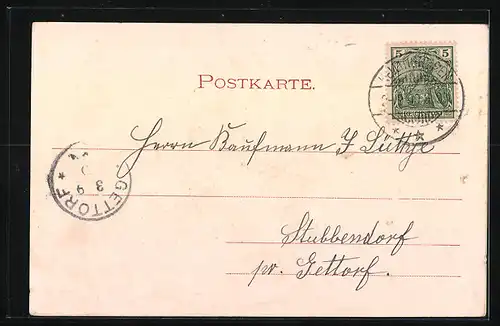 5 5
POSTKARTE.
Herrn Kaufmann J. Lüthje
GETTORF
3 9
Stubbendorf
pr. Gettorf.